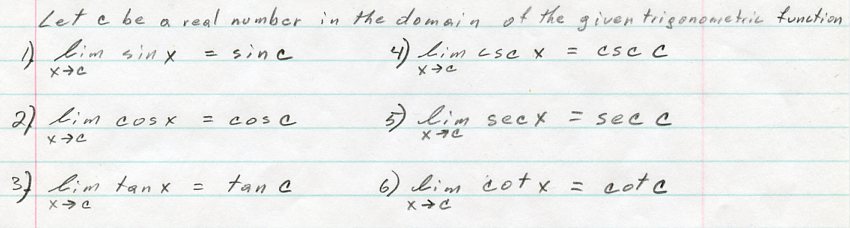 Let c be a real number in the domain of the given trigonometric function
1) lim sin x = sin c
x→c
4) lim csc x = csc c
x→c
2) lim cos x = cos c
x→c
5) lim sec x = sec c
x→c
3) lim tan x = tan c
x→c
6) lim cot x = cot c
x→c